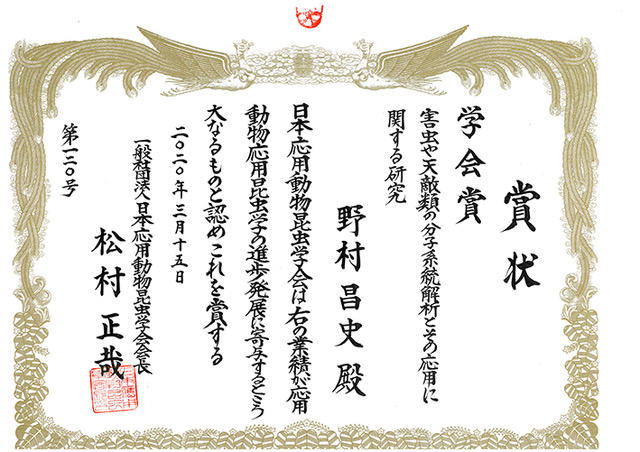 賞状
学会賞
害虫や天敵類の分子系統解析とその応用に
関する研究
野村昌史殿
日本応用動物昆虫学会は右の業績が応用
動物応用昆虫学の進歩発展に寄与するところ
大なるものと認めこれを賞する
二〇二〇年三月十五日
一般社団法人日本応用動物昆虫学会会長
松村正哉
第一二〇号